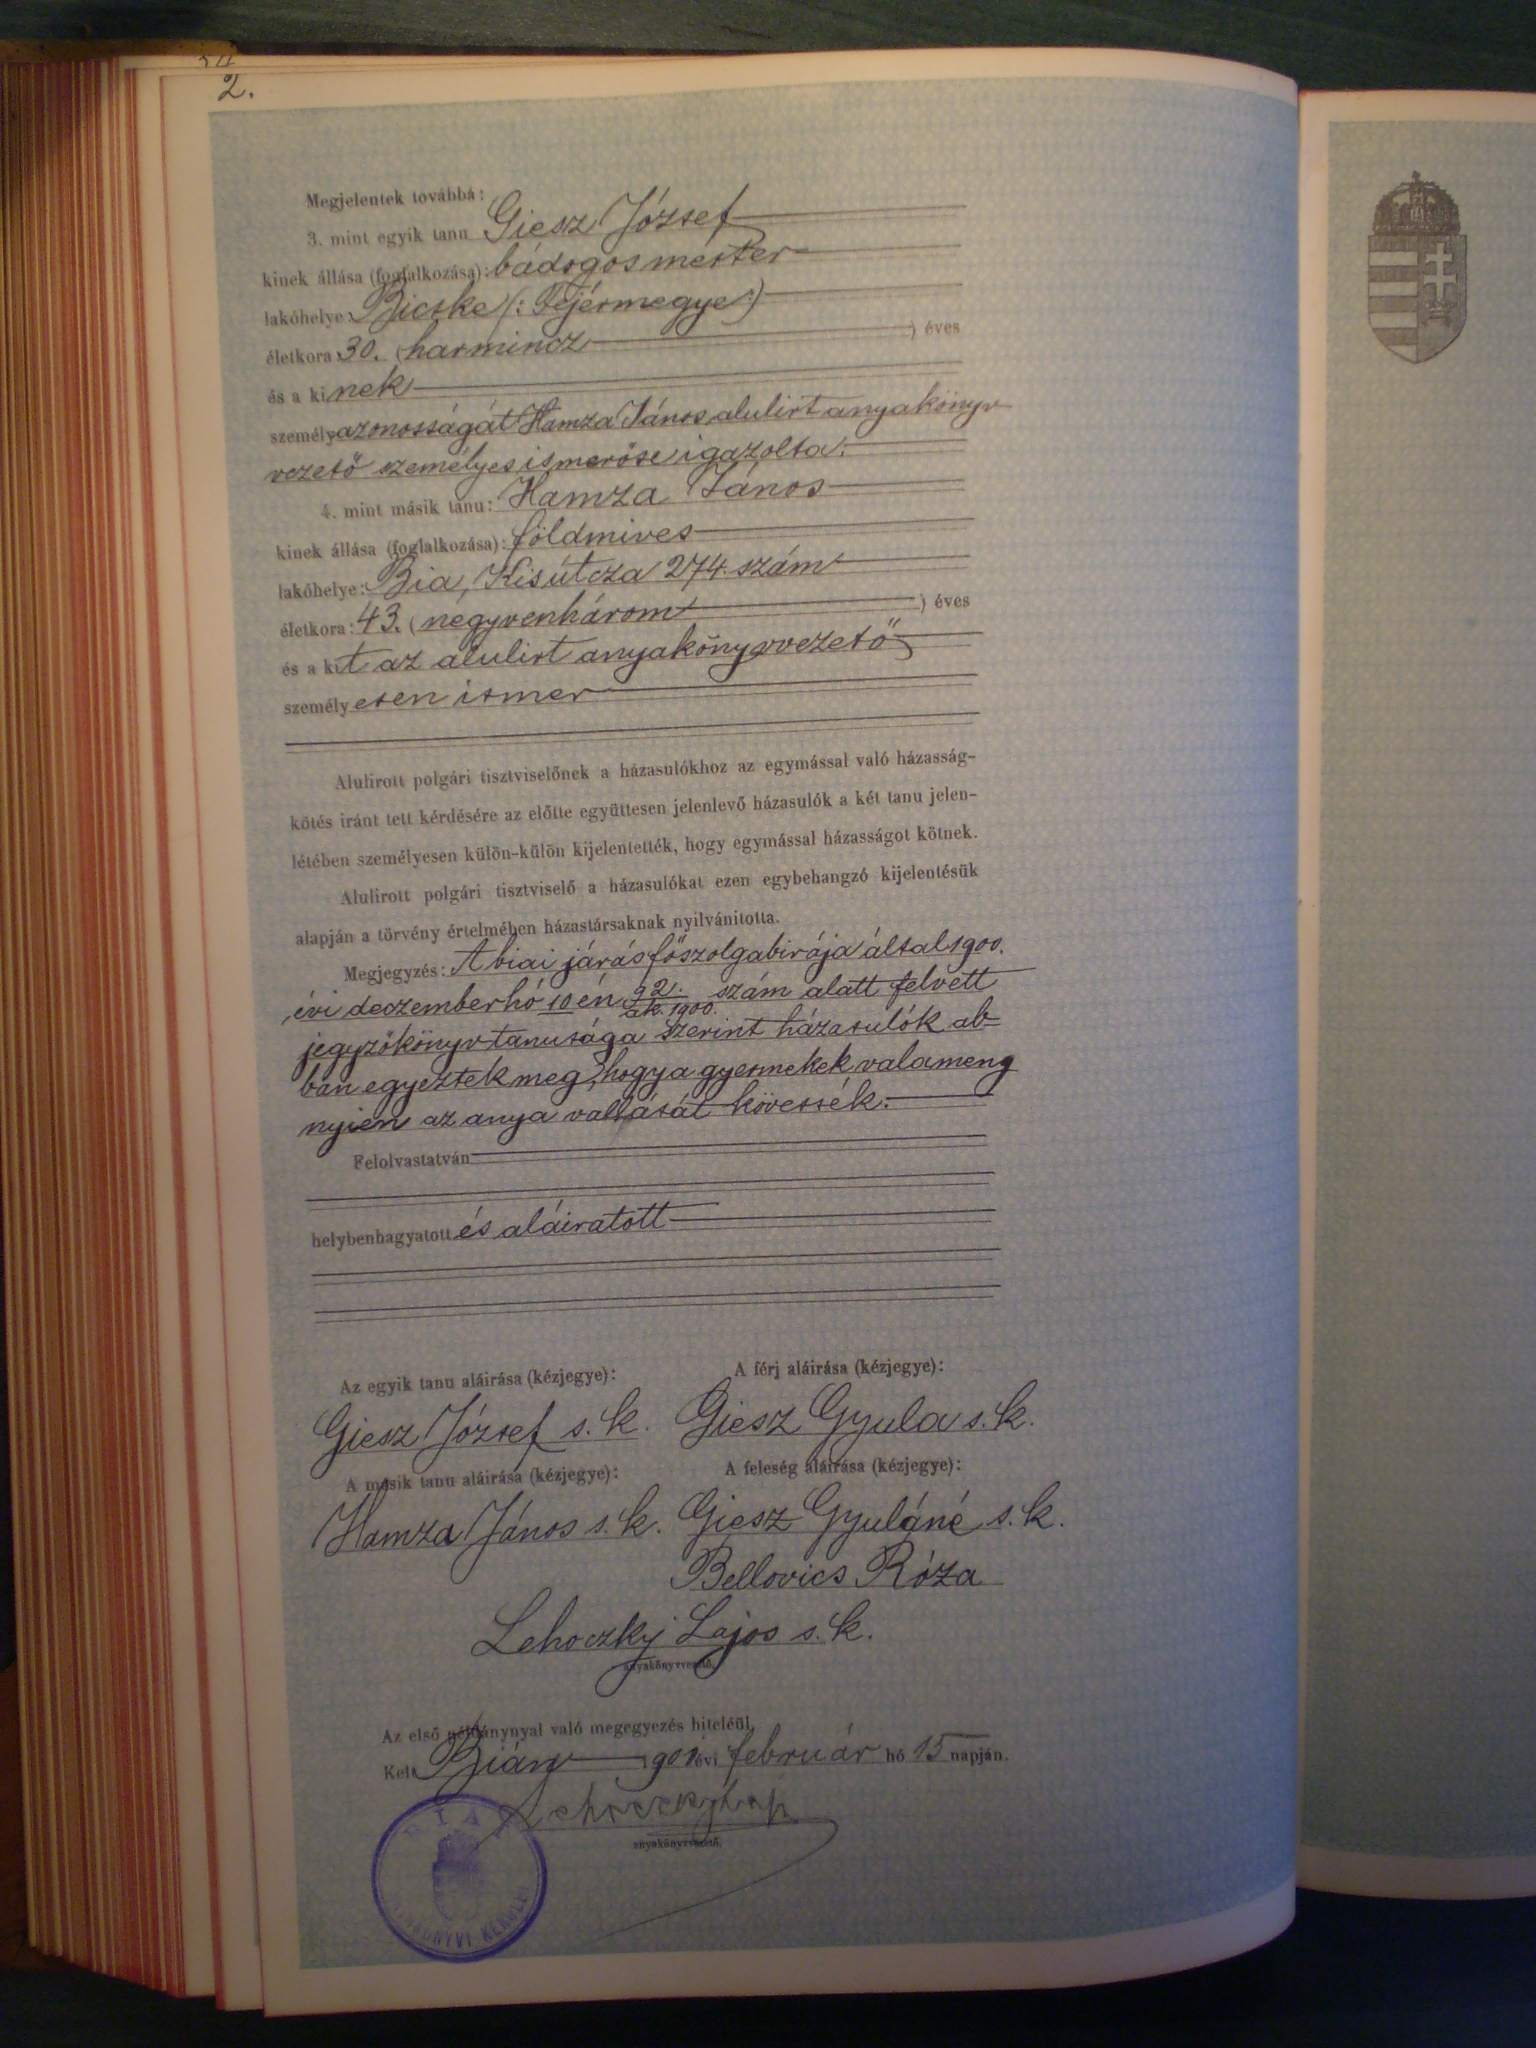 2.
Megjelentek továbbá:
3. mint egyik tanu Giesz József
kinek állása (foglalkozása): bádogos mester
lakóhelye: Bicske (: Fejérmegye :)
életkora: 30. (harmincz) éves
és a kinek
személyazonosságát Hamza János alulirt anyakönyv
vezető személyes ismerőse igazolta.
4. mint másik tanu: Hamza János
kinek állása (foglalkozása): földmives
lakóhelye: Bia, Kisútcza 274. szám
életkora: 43. (negyvenhárom) éves
és a kit az alulirt anyakönyvvezető
személyesen ismer
Alulirott polgári tisztviselőnek a házasulókhoz az egymással való házasság-
kötés iránt tett kérdésére az előtte együttesen jelenlevő házasulók a két tanu jelen-
létében személyesen külön-külön kijelentették, hogy egymással házasságot kötnek.
Alulirott polgári tisztviselő a házasulókat ezen egybehangzó kijelentésük
alapján a törvény értelmében házastársaknak nyilvánitotta.
Megjegyzés: A biai járás főszolgabirája által 1900.
évi deczember hó 10 én 92. / ak. 1900. szám alatt felvett
jegyzőkönyv tanusága szerint házasulók ab-
ban egyeztek meg, hogy a gyermekek valameny
nyien az anya vallását kövessék.
Felolvastatván
helybenhagyatott és aláiratott
Az egyik tanu aláirása (kézjegye): A férj aláirása (kézjegye):
Giesz József s. k. Giesz Gyula s. k.
A másik tanu aláirása (kézjegye): A feleség aláirása (kézjegye):
Hamza János s. k. Giesz Gyuláné s. k.
Bellovics Róza
Lehoczky Lajos s. k.
anyakönyvvezető.
Az első példánynyal való megegyezés hiteléül.
Kelt Bián 1901 évi február hó 15 napján.
Lehoczky Lajos
anyakönyvvezető.